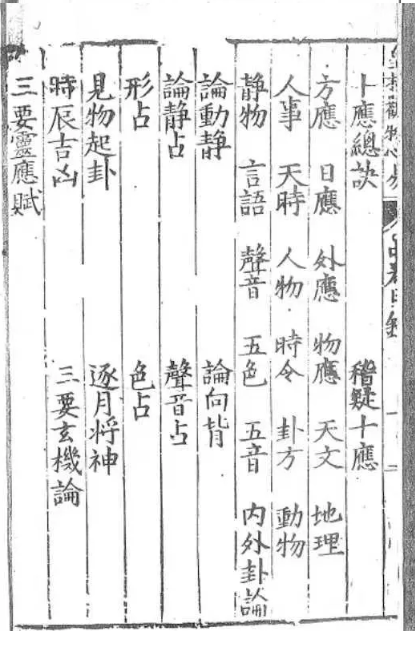 卜應總訣 稽疑十應
方應 日應 外應 物應 天文 地理
人事 天時 人物 時令 卦方 動物
静物 言語 聲音 五色 五音 內外卦論
論動靜 論向背
論静占 聲音占
形占 色占
見物起卦 逐月将神
時辰吉凶 三要玄機論
三要靈應賦